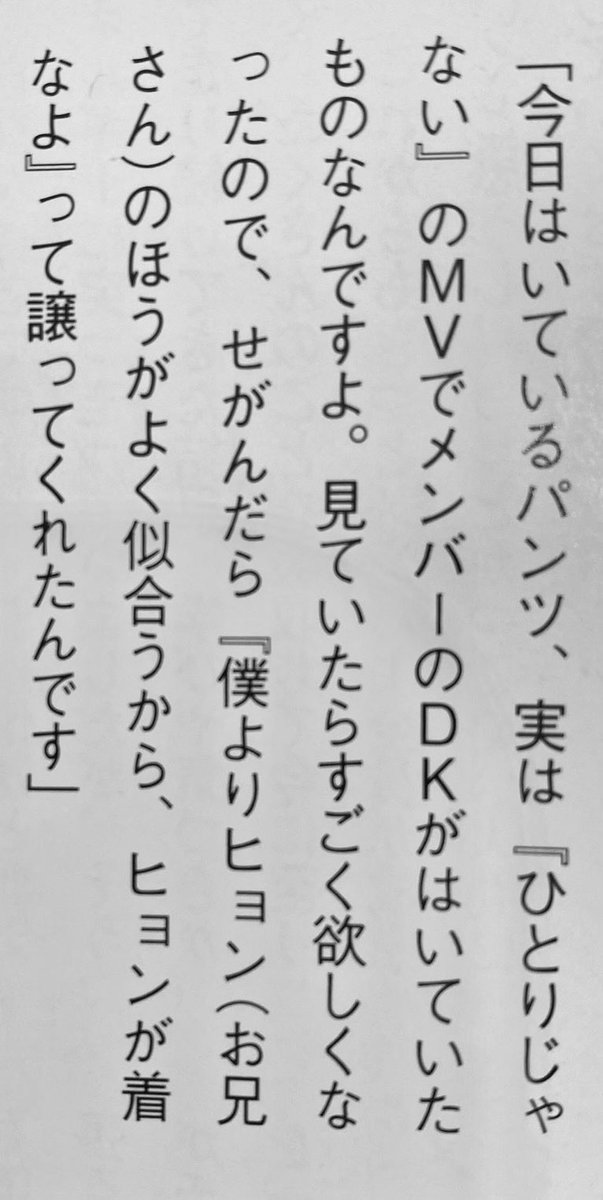 「今日はいているパンツ、実は『ひとりじゃ
ない』のMVでメンバーのDKがはいていた
ものなんですよ。見ていたらすごく欲しくな
ったので、せがんだら『僕よりヒョン(お兄
さん)のほうがよく似合うから、ヒョンが着
なよ』って譲ってくれたんです」